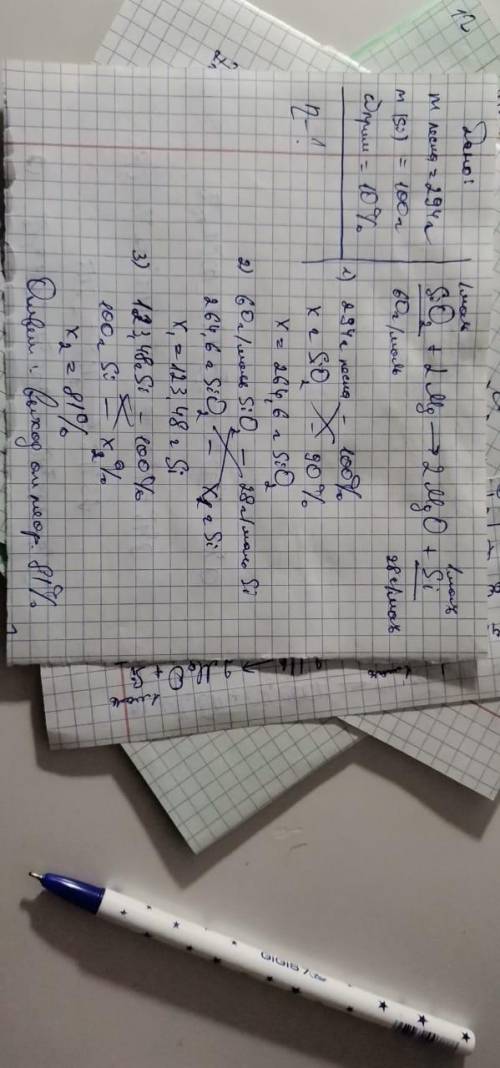 Дано:
m песка = 294 г
m (Si) = 100 г
ω прим = 10%
η - ?
1 моль 1 моль
SiO₂ + 2 Mg → 2 MgO + Si
60 г/моль 28 г/моль
1) 294 г песка – 100%
x г SiO₂ – 90%
x = 264,6 г SiO₂
2) 60 г/моль SiO₂ – 28 г/моль Si
264,6 г SiO₂ – x₁ г Si
x₁ = 123,48 г Si
3) 123,48 г Si – 100%
100 г Si – x₂%
x₂ = 81%
Ответ: выход от теор. 81%
1 моль
2 MgO + Si
GIGIS